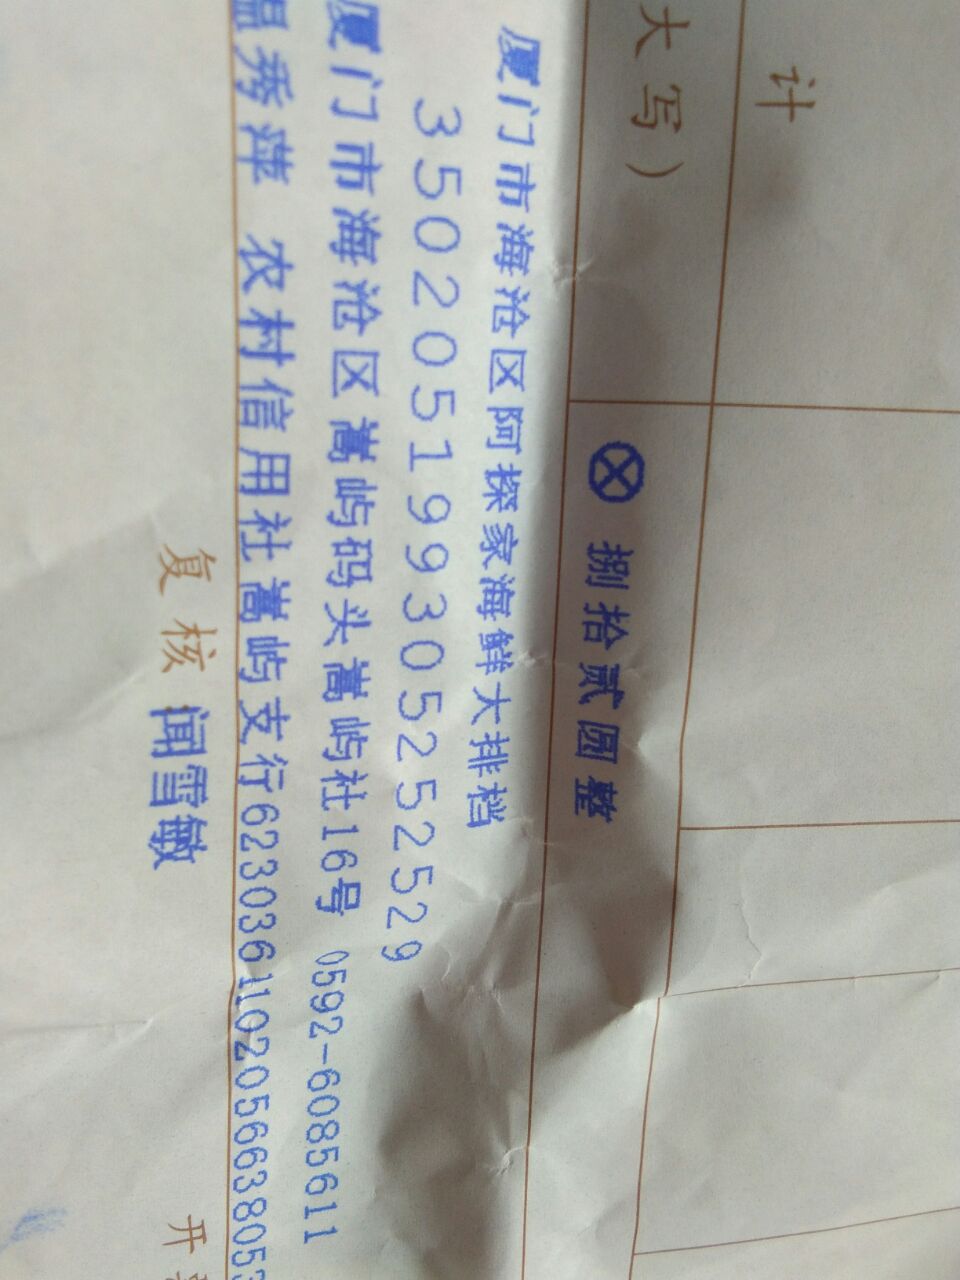 计
大写）
⊗ 捌拾贰圆整
厦门市海沧区阿探家海鲜大排档
350205199305252529
厦门市海沧区嵩屿码头嵩屿社16号 0592-6085611
温秀萍 农村信用社嵩屿支行6230361102056638053
复核 闻雪敏
开